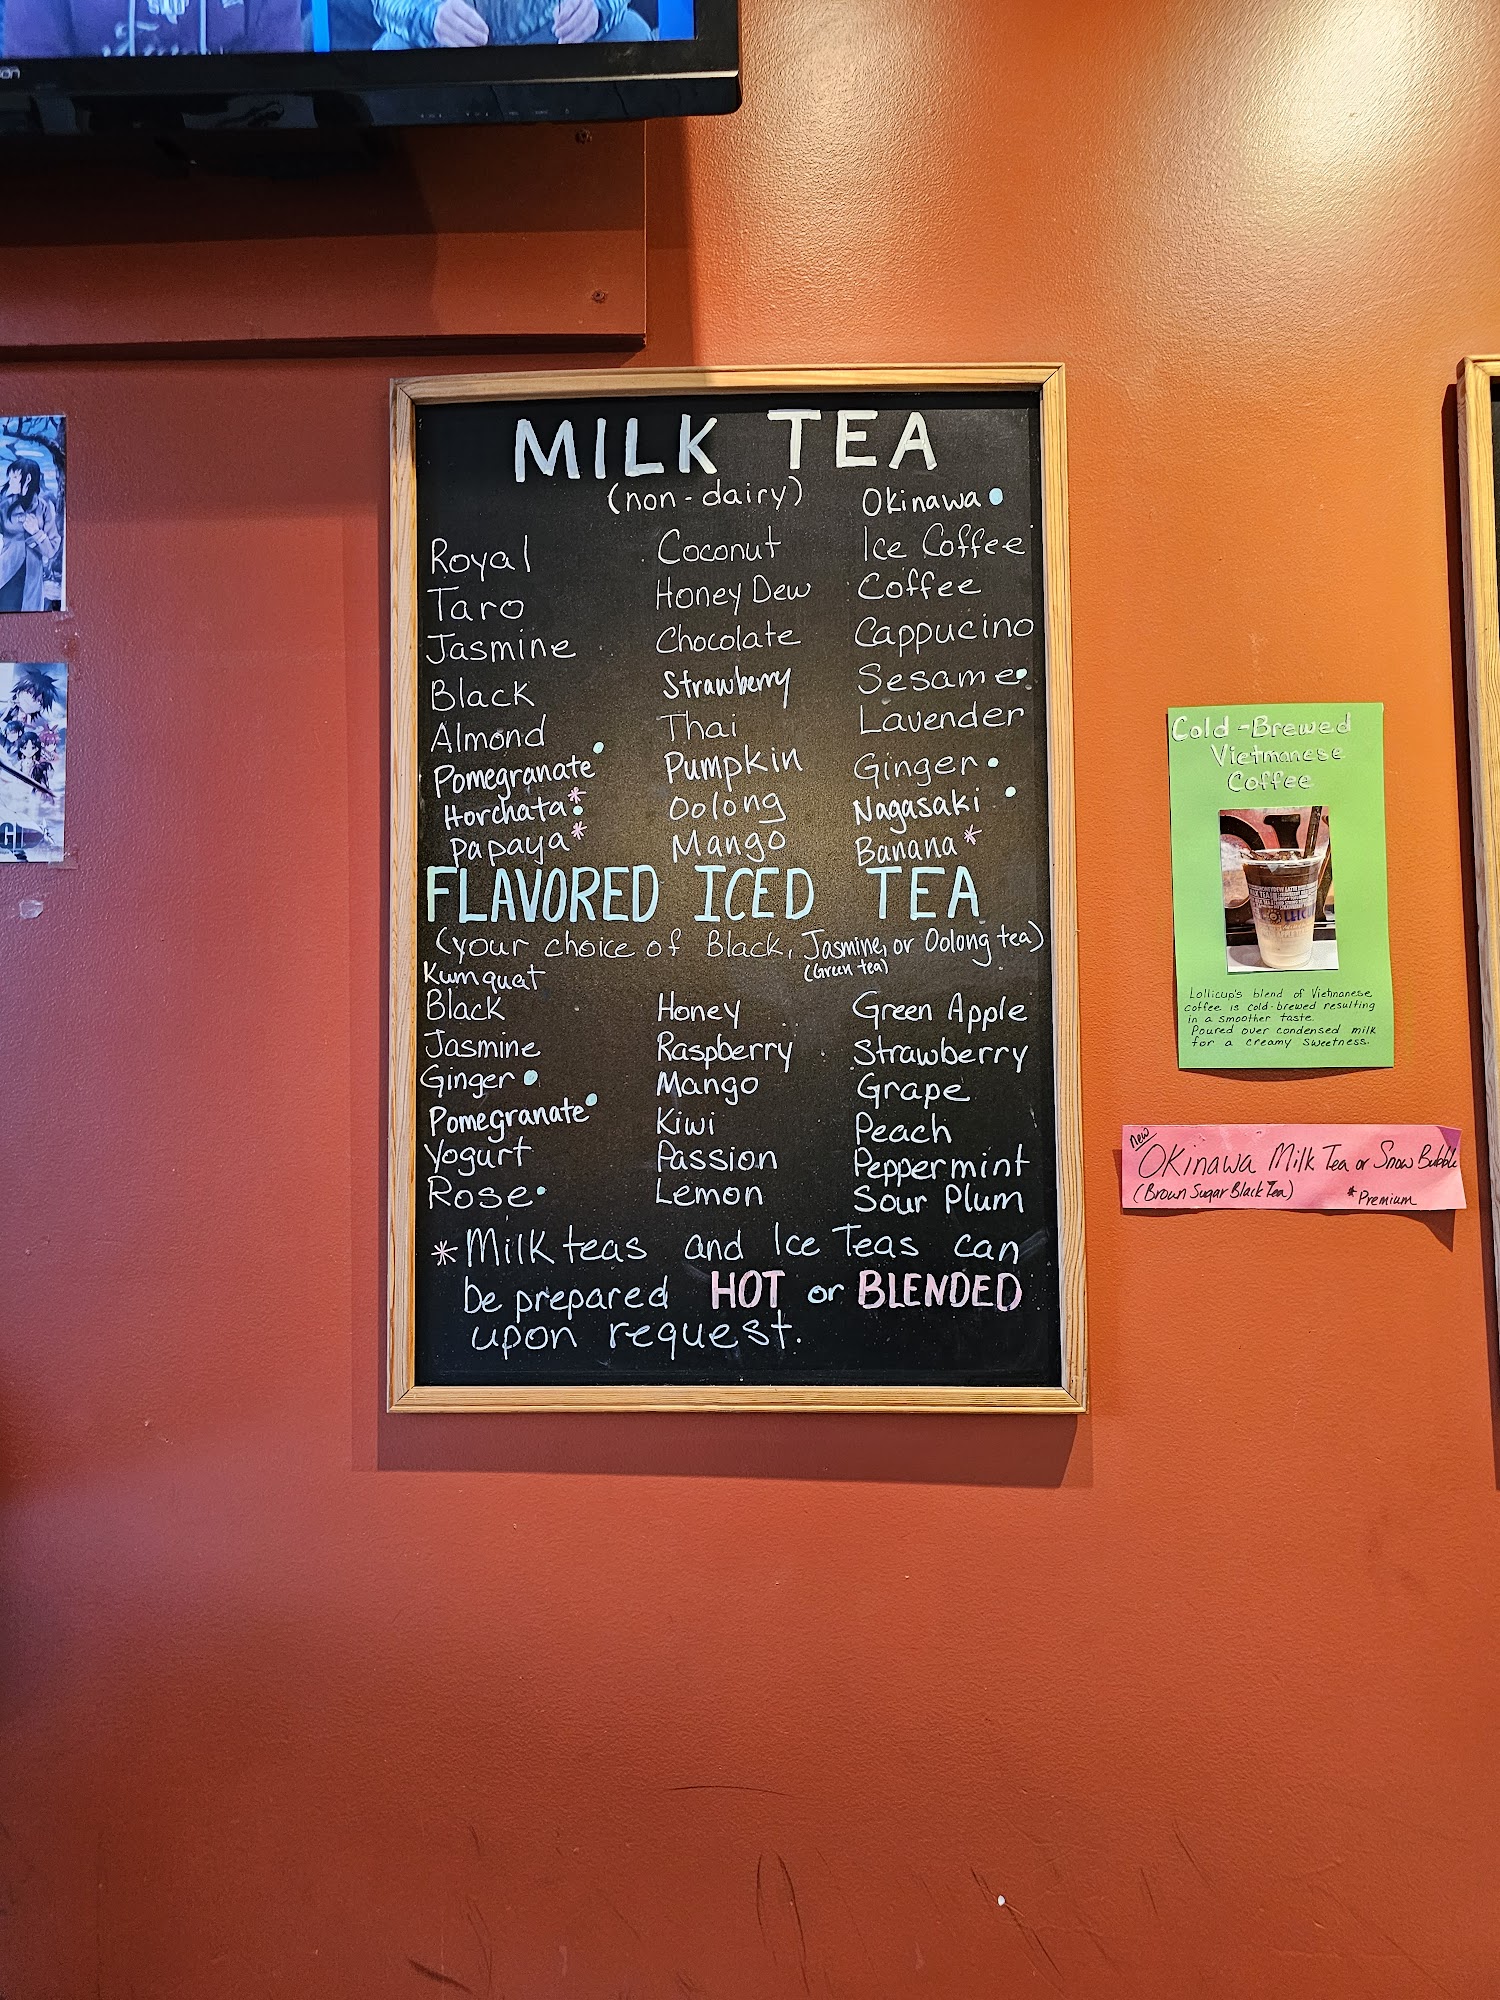 MILK TEA
(non-dairy)
Royal
Taro
Jasmine
Black
Almond
Pomegranate
Horchata*
Papaya*
Coconut
Honey Dew
Chocolate
Strawberry
Thai
Pumpkin
Oolong
Mango
Okinawa
Ice Coffee
Coffee
Cappucino
Sesame
Lavender
Ginger
Nagasaki
Banana*
FLAVORED ICED TEA
(your choice of Black, Jasmine, or Oolong tea)
(Green tea)
Kumquat
Black
Jasmine
Ginger
Pomegranate
Yogurt
Rose
Honey
Raspberry
Mango
Kiwi
Passion
Lemon
Green Apple
Strawberry
Grape
Peach
Peppermint
Sour Plum
*Milk teas and Ice Teas can
be prepared HOT or BLENDED
upon request.
Cold-Brewed
Vietmanese
Coffee
Lollicup's blend of Vietnanese
coffee is cold-brewed resulting
in a smoother taste.
Poured over condensed milk
for a creamy sweetness.
new
Okinawa Milk Tea or Snow Bubble
(Brown Sugar Black Tea) *Premium